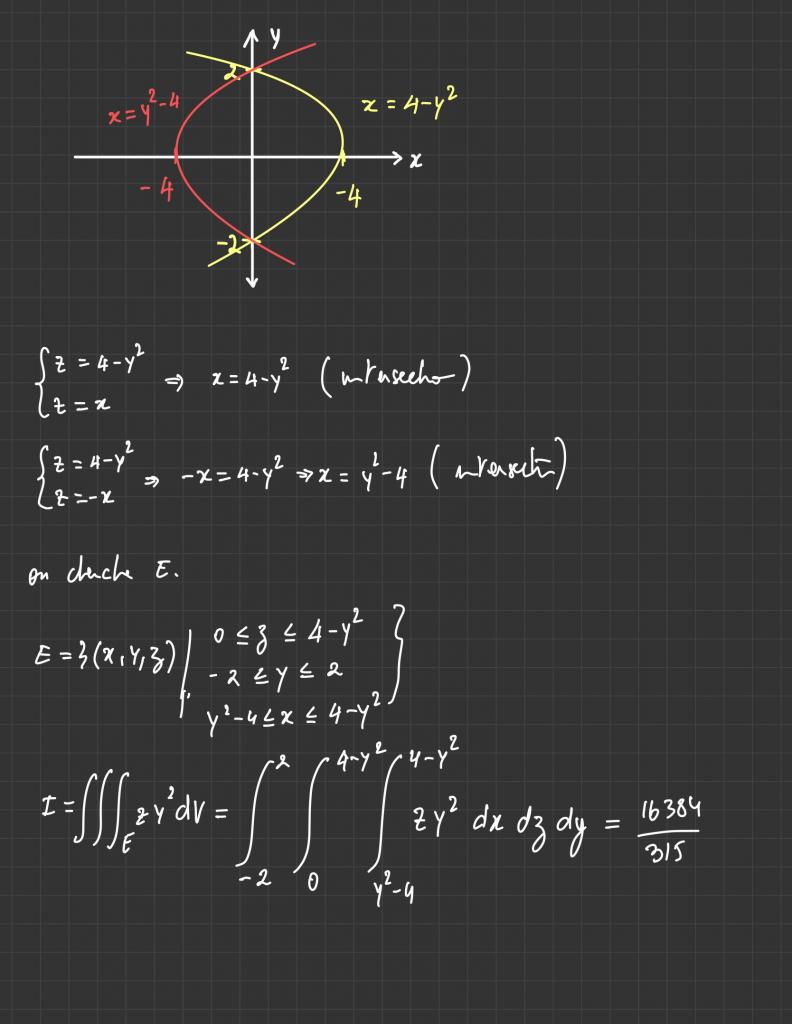 y
2
x = y² - 4
x = 4 - y²
x
- 4
-4
-2
{ z = 4 - y²
{ z = x
⇒ x = 4 - y² (intersection)
{ z = 4 - y²
{ z = -x
⇒ -x = 4 - y² ⇒ x = y² - 4 (intersection)
on cherche E.
0 ≤ z ≤ 4 - y²
E = {(x, y, z) | - 2 ≤ y ≤ 2 }
y² - 4 ≤ x ≤ 4 - y²
I = ∭_E z y² dV = ∫_{-2}^{2} ∫_{0}^{4-y²} ∫_{y²-4}^{4-y²} z y² dx dz dy = 16384/315